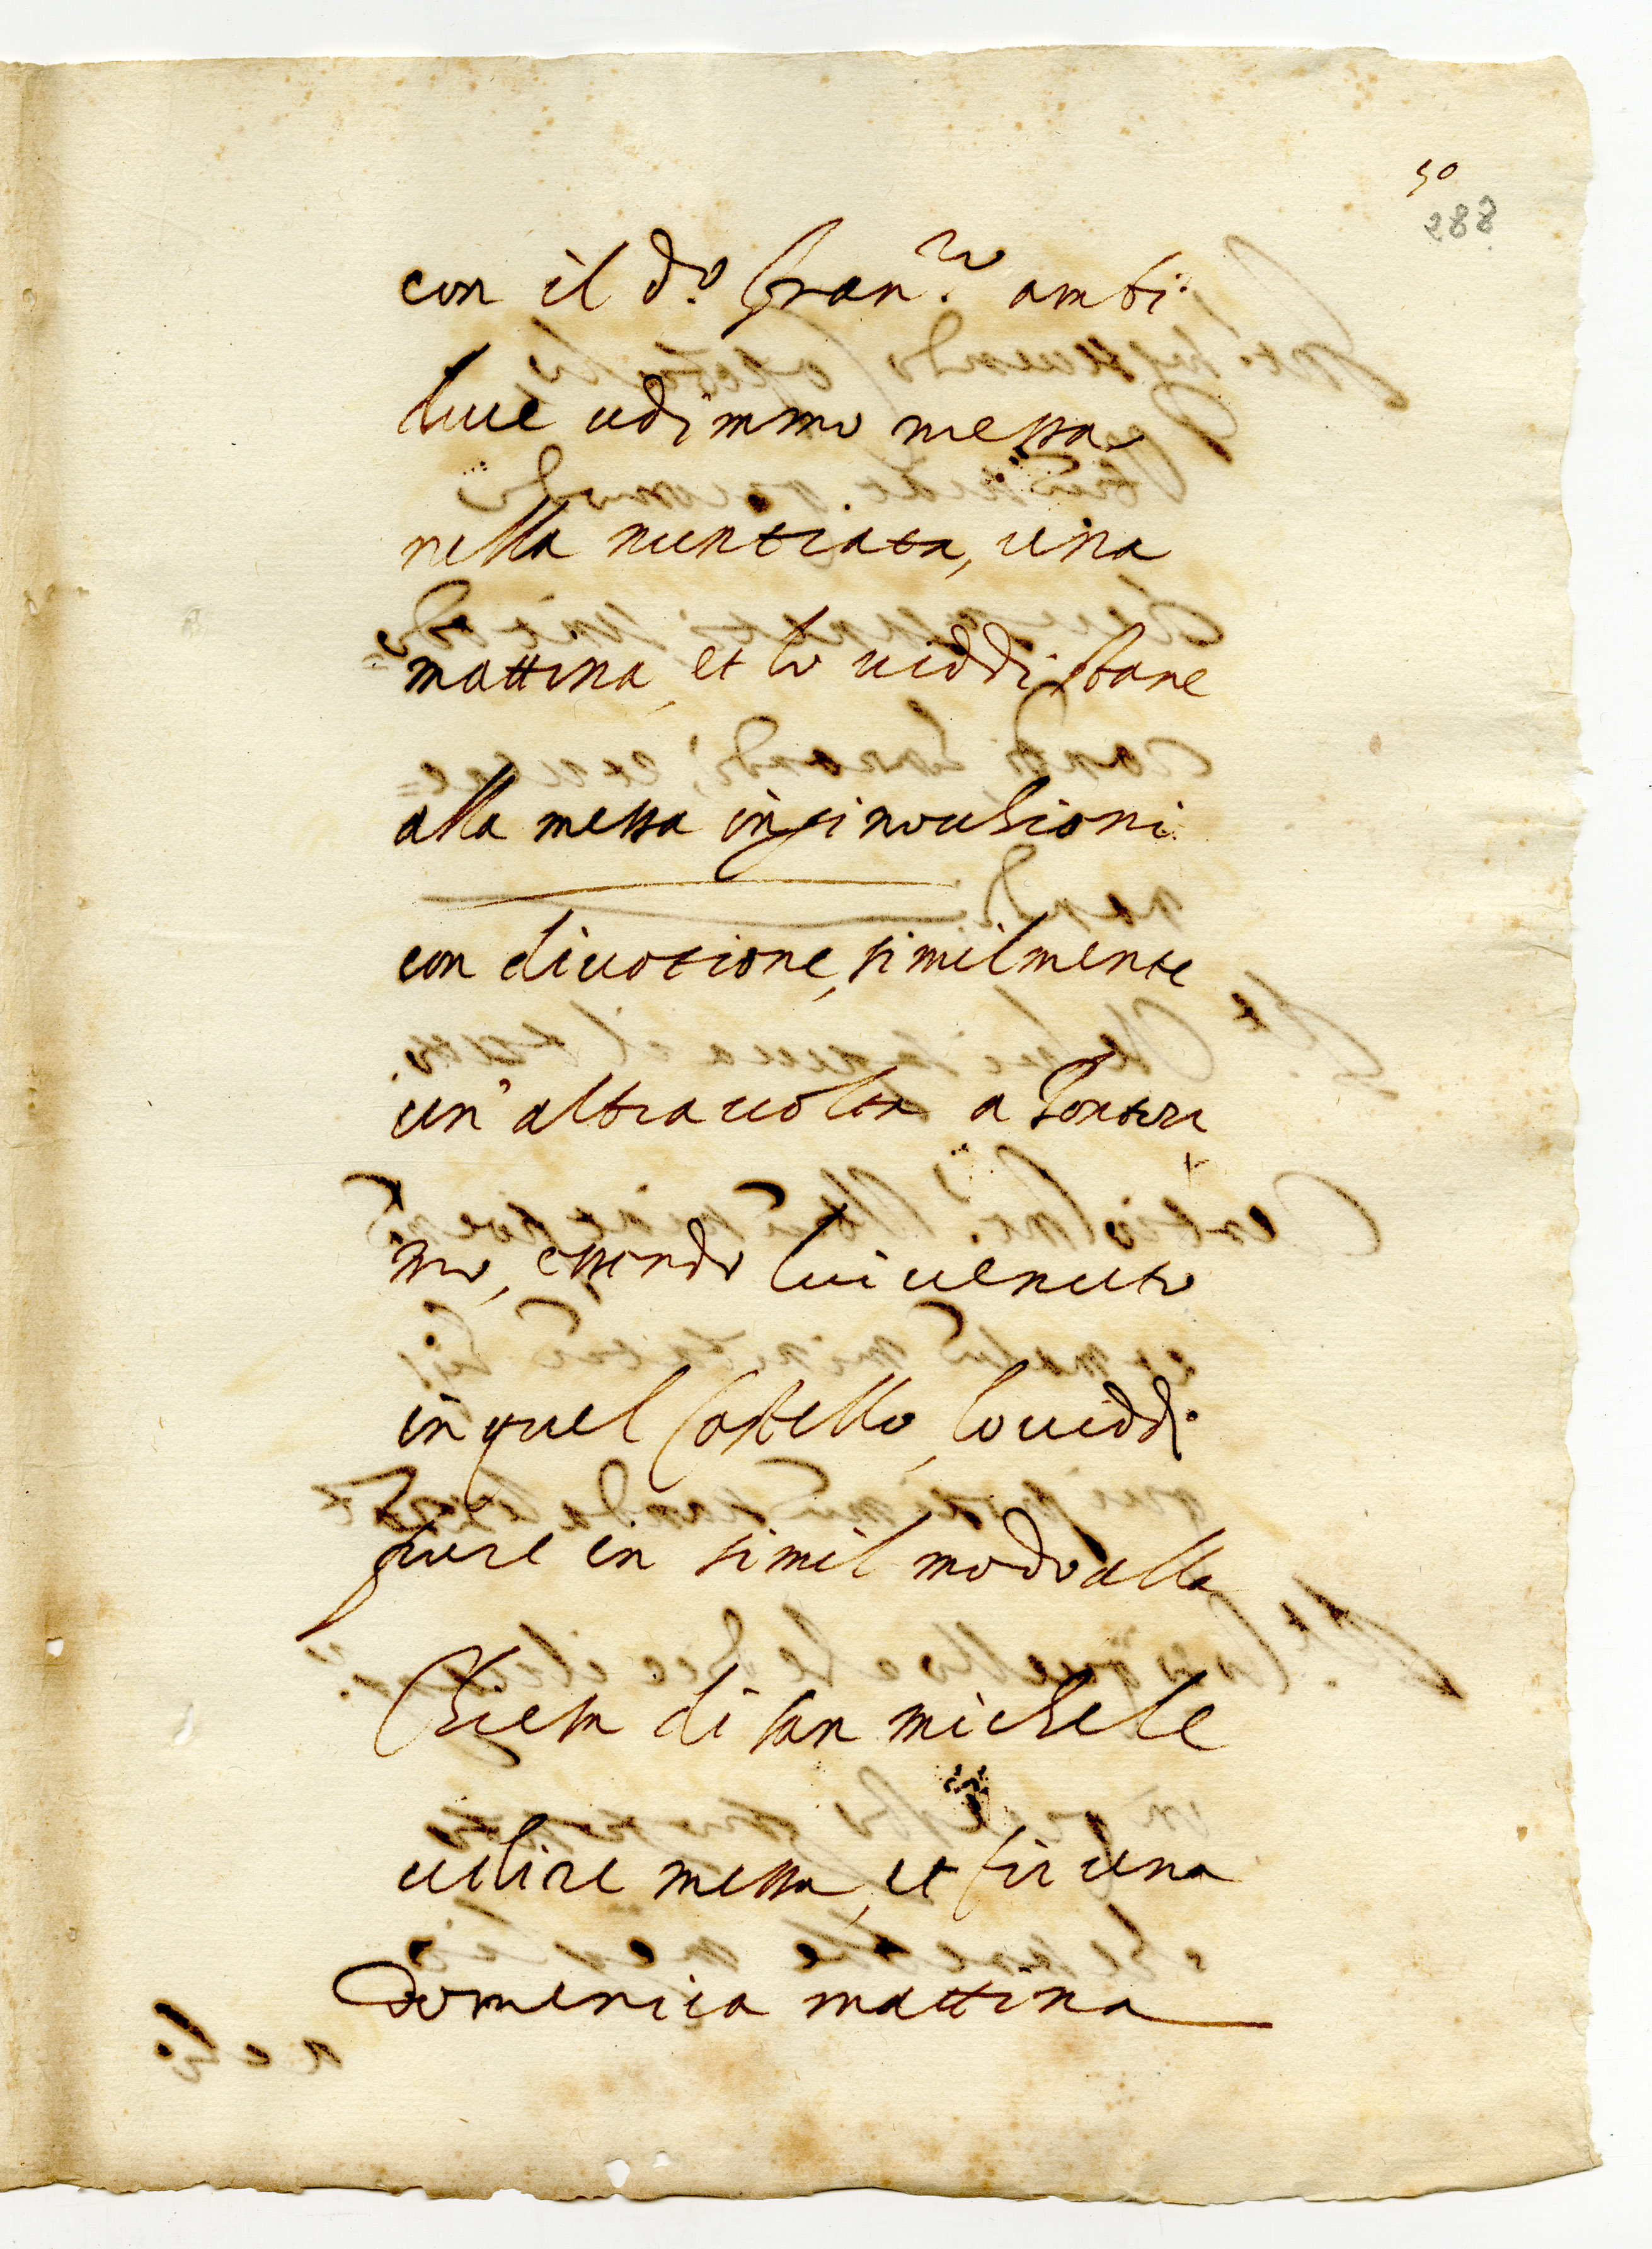 50
288
con il d.o Fran.co ambi
due udimmo messa
nella nuntiata, una
mattina, et lo uiddi stare
alla messa inginochioni
con diuotione, similmente
un' altra uolta a Ponteri
mo, essendo lui uenuto
in quel Castello, lo uiddi
pure in simil modo alla
Chiesa di san michele
udire messa, et fu una
Domenica mattina